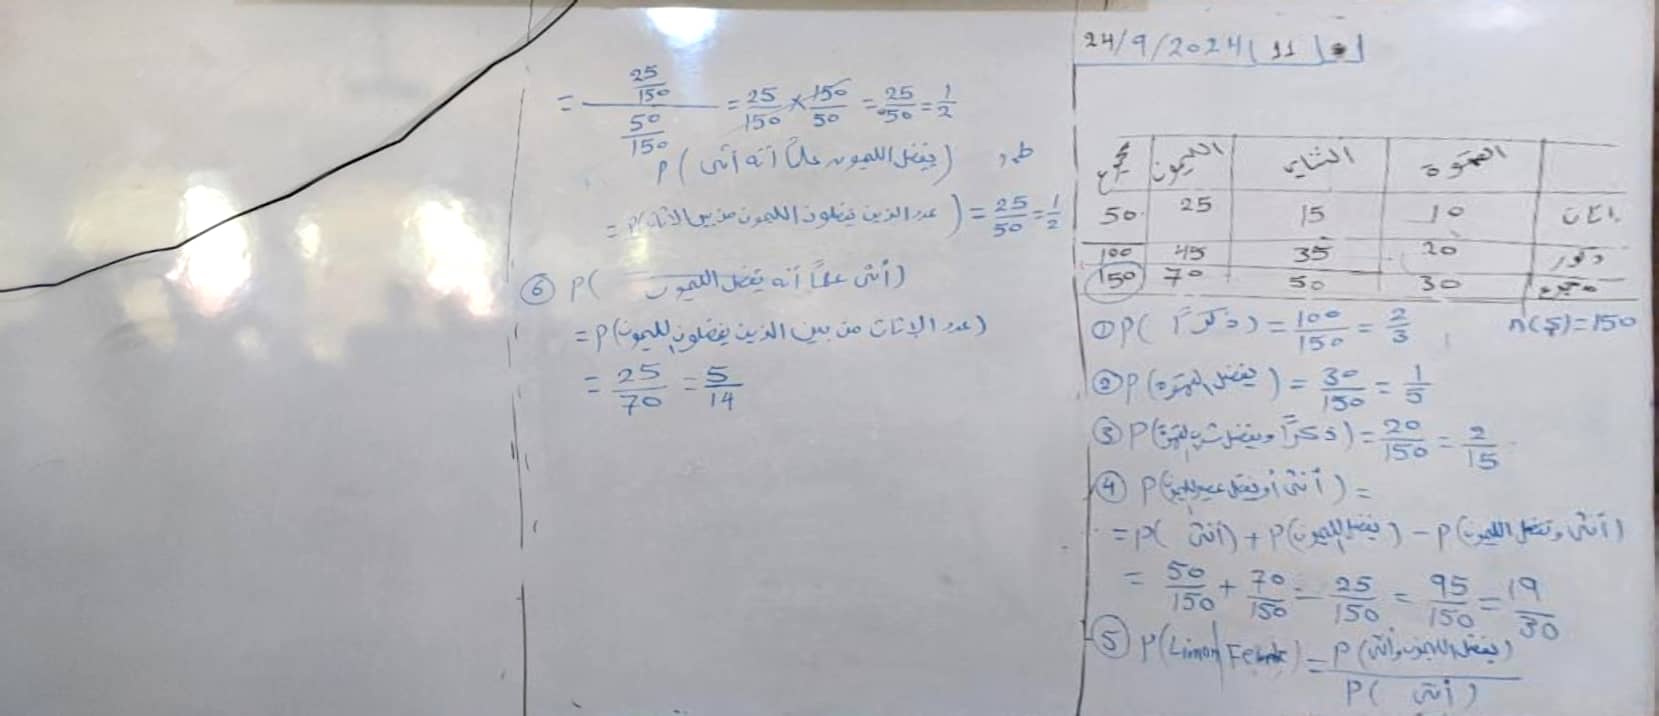 24/9/2024 | 11 |
القهوة الشاي الليمون مجموع
إناث 10 15 25 50
ذكور 20 35 45 100
مجموع 30 50 70 150
n(S)=150
① P( ذكراً ) = 100/150 = 2/3
② P( يفضل القهوة ) = 30/150 = 1/5
③ P( ذكراً ويفضل شرب القهوة ) = 20/150 = 2/15
④ P( أنثى أو يفضل ) =
= P( أنثى ) + P( يفضل الليمون ) - P( أنثى وتفضل الليمون )
= 50/150 + 70/150 - 25/150 = 95/150 = 19/30
⑤ P(Limon | Female) = P( يفضل الليمون وأنثى ) / P( أنثى )
= (25/150) / (50/150) = 25/150 × 150/50 = 25/50 = 1/2
P( يفضل الليمون علماً أنه أنثى )
= P( عدد الذين يفضلون الليمون من بين الإناث ) = 25/50 = 1/2
⑥ P( أنثى علماً أنه يفضل الليمون )
= P( عدد الإناث من بين الذين يفضلون الليمون )
= 25/70 = 5/14